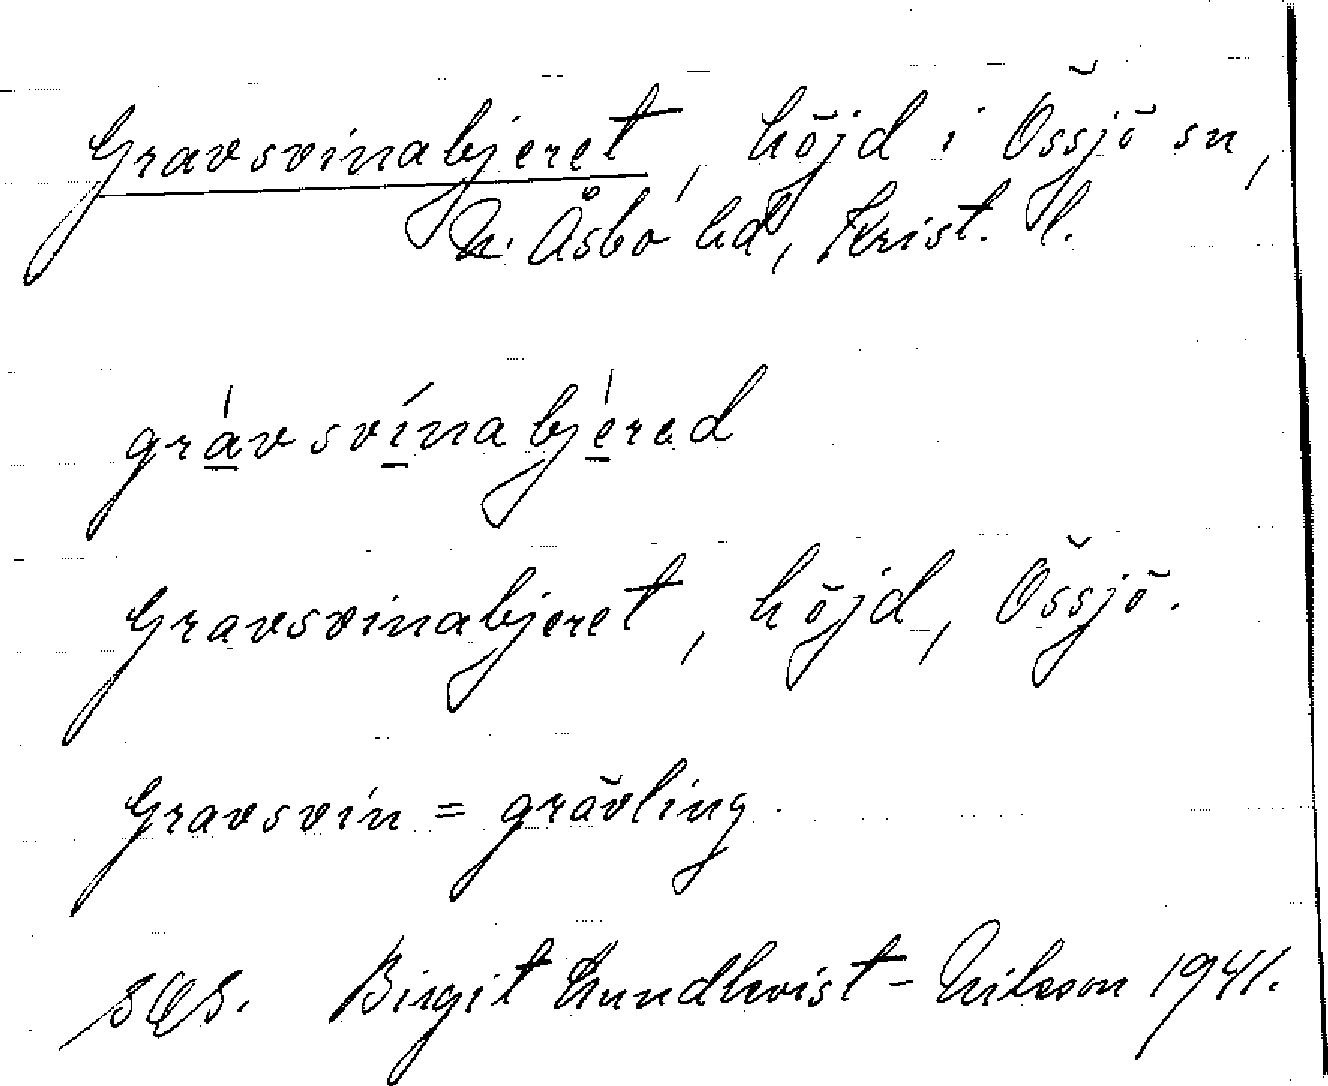 Gravsvinabjeret, höjd i Össjö sn,
N. Åsbo hd, Krist. l.
grávsvínabjérad
Gravsvinabjeret, höjd, Össjö.
Gravsvin = grävling.
Birgit Lundkvist - Nilsson 1941.